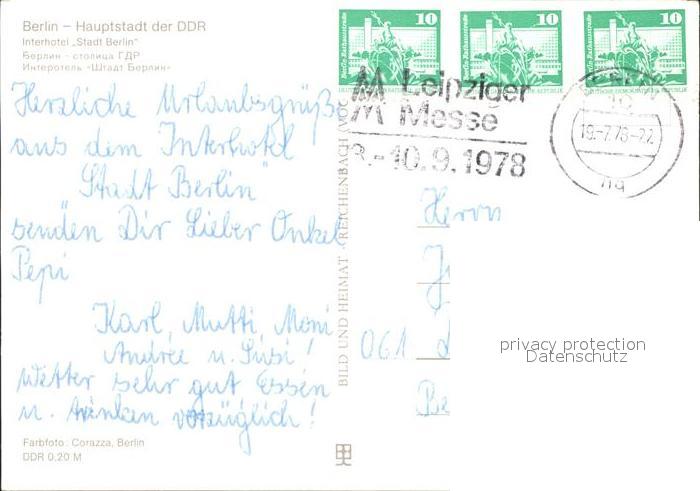 Berlin – Hauptstadt der DDR
Interhotel „Stadt Berlin"
Берлин – столица ГДР
Интеротель «Штадт Берлин»
Herzliche Urlaubsgrüße
aus dem Interhotel
Stadt Berlin"
senden Dir Lieber Onkel
Pepi
Karl, Mutti, Moni
Andrée u. Susi!
Wetter sehr gut Essen
u. trinken vorzüglich!
Farbfoto: Corazza, Berlin
DDR 0,20 M
BILD UND HEIMAT REICHENBACH (VOG
10
10
10
Berlin-Rathausstraße
Berlin-Rathausstraße
Berlin-Rathausstraße
DEUTSCHE DEMOKRATISCHE REPUBLIK
MM Leipziger
Messe
3.-10.9.1978
BERLIN
19.-7.78-22
Herrn
061
Be
privacy protection
Datenschutz